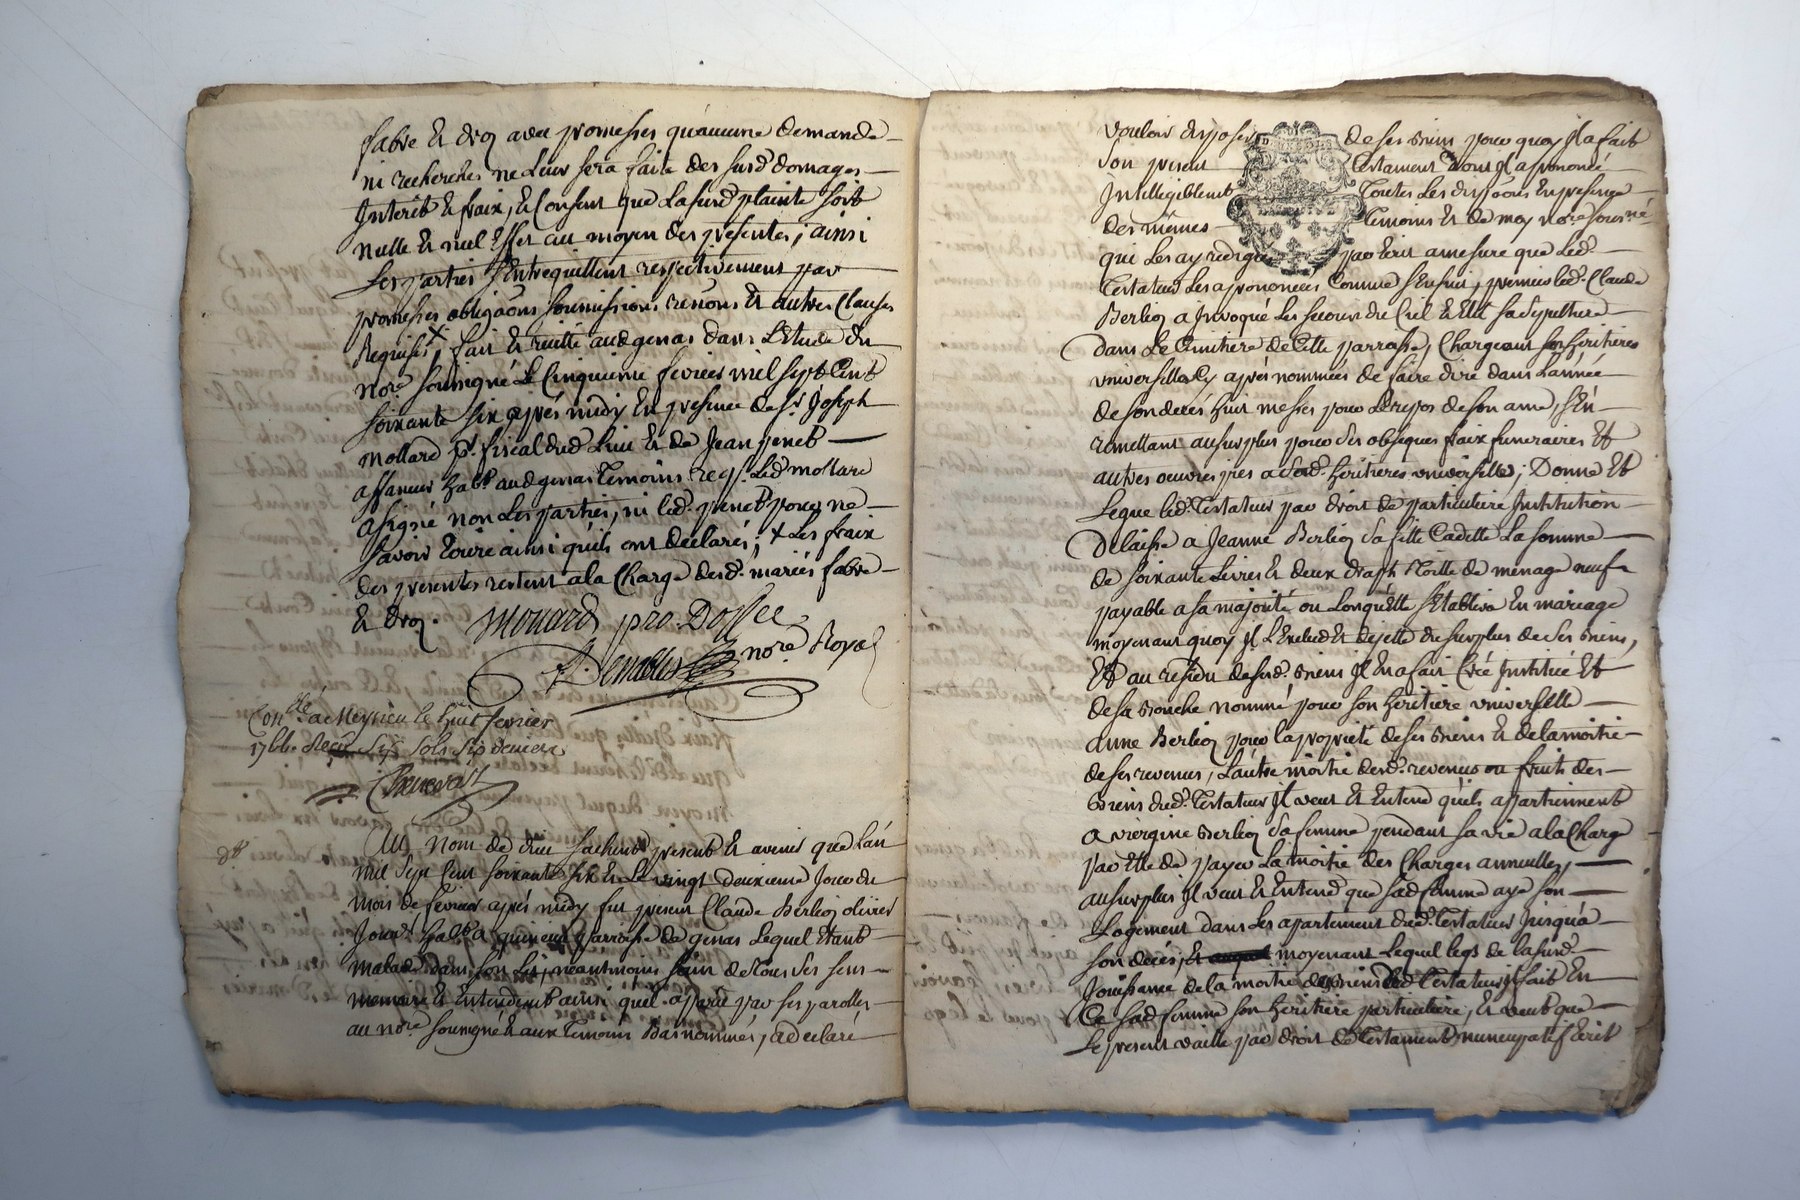 fabre Et droz avec promesses qu'aucune demande
ni recherches ne Leur sera faite des susd. domages
Interêt & fraix, & Consent que La susd. plainte soit
nulle Et nul Effet au moyen des presentes; ainsi
Les parties S'Entrequittent respectivement par
promesses obligaôns soumissions renôns Et autres Clauses
Requises, fait & recitté aud genas dans L'Etude du
nore. soussigné Le Cinquieme fevrier mil sept Cent
soixante six après midy En presence de sr. Joseph
Mollard pr. fiscal dud Lieu Et de Jean penet
affaneur habt. aud genas Temoins req. Led. mollard
a signé non Les parties, ni led. penet pour ne
savoir Ecrire ainsi qu'ils ont declarés; + Les fraix
des presentes restent a la Charge desd. mariés fabre
Et droz.
nore Royal
Conllé a Meyzieu le huit fevrier
1766 Reçu six sols six deniers
Au Nom de dieu sachent present Et avenir que L'an
mil sept Cent soixante six Et Le vingt deuxieme Jour du
mois de fevrier après midy fut present Claude Berlioz olivier
Jourr. habt. a parroisse de genas Lequel Etant
malade dans son Lit, neantmoins sain de Tous ses sens
memoire & Entendemt. ainsi quil apparu par ses parolles
au nore. soussigné & aux Temoins Bas nommés, a declaré
vouloir disposer de ses Biens pour quoy Il a fait
son present Testament dont Il a prononcé
Intelligiblemt. Toutes Les disposons En presence
des mêmes Temoins Et de moy nore sousné.
qui Les ay redigé par Ecrit a mesure que Led.
Testateur Les a prononcées Comme S'Ensuit, premier led. Claude
Berlioz a Invoqué Les secours du Ciel & Elû sa sepulture
dans Le Cimitiere de Cette parroisse, Chargeant son heritieres
vniverselles Cy après nommées de faire dire dans L'année
de son decés huit messes pour Le repos de son ame, s'En
remettant au surplus pour ses obseques fraix funeraires Et
autres oeuvres pies a sad. heritieres universelles; Donne Et
Legue led. Testateur par droit de particuliere Institution
Delaisse a Jeanne Berlioz sa fille Cadette La somme
de soixante Livres & deux draps Toille de menage neufs
payable a sa majorité ou Lorsqu'Elle s'Etablira En mariage
moyenant quoy Il L'Exclud Et dejette du surplus de ses Biens,
Et au residu de susd. Biens Il En a fait Créé Institué Et
de sa Bouche nommé pour son heritiere vniverselle
anne Berlioz pour la propriété de ses Biens & de la moitié
de ses revenus, L'autre moitié desd. revenus ou fruits des
Biens dud. Testateur Il veut Et Entend qu'ils appartiennent
a viergine Berlioz sa femme pendant sa vie a la Charge
par Elle de payer La moitié des Charges annuelles,
au surplus Il veut & Entend que sad femme aye son
Logement dans Les appartement dud. Testateur Jusqu'a
son decés, moyenant Lequel legs de la susd.
Jouissance de la moitié des Biens dud Testateur Il fait En
Ce sad femme son heritiere particuliere, Et veut que
Le present vaille par droit de Testament nuncupatif Ecrit